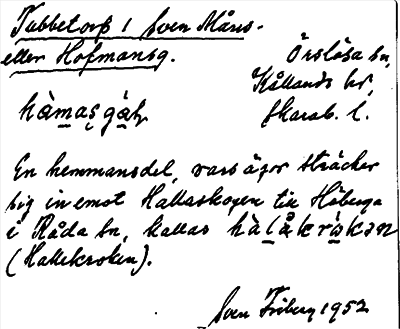 Tubbetorp 1 Sven Måns-
eller Hofmansg.
Örslösa sn,
Kållands hd,
Skarab. l.
hàmasgàḷ
En hemmansdel, vars ägor sträcker
sig in emot Hallaskogen till Höberga
i Råda sn, kallas hàlåkròkən
(Hallekroken).
Sven Friberg 1952